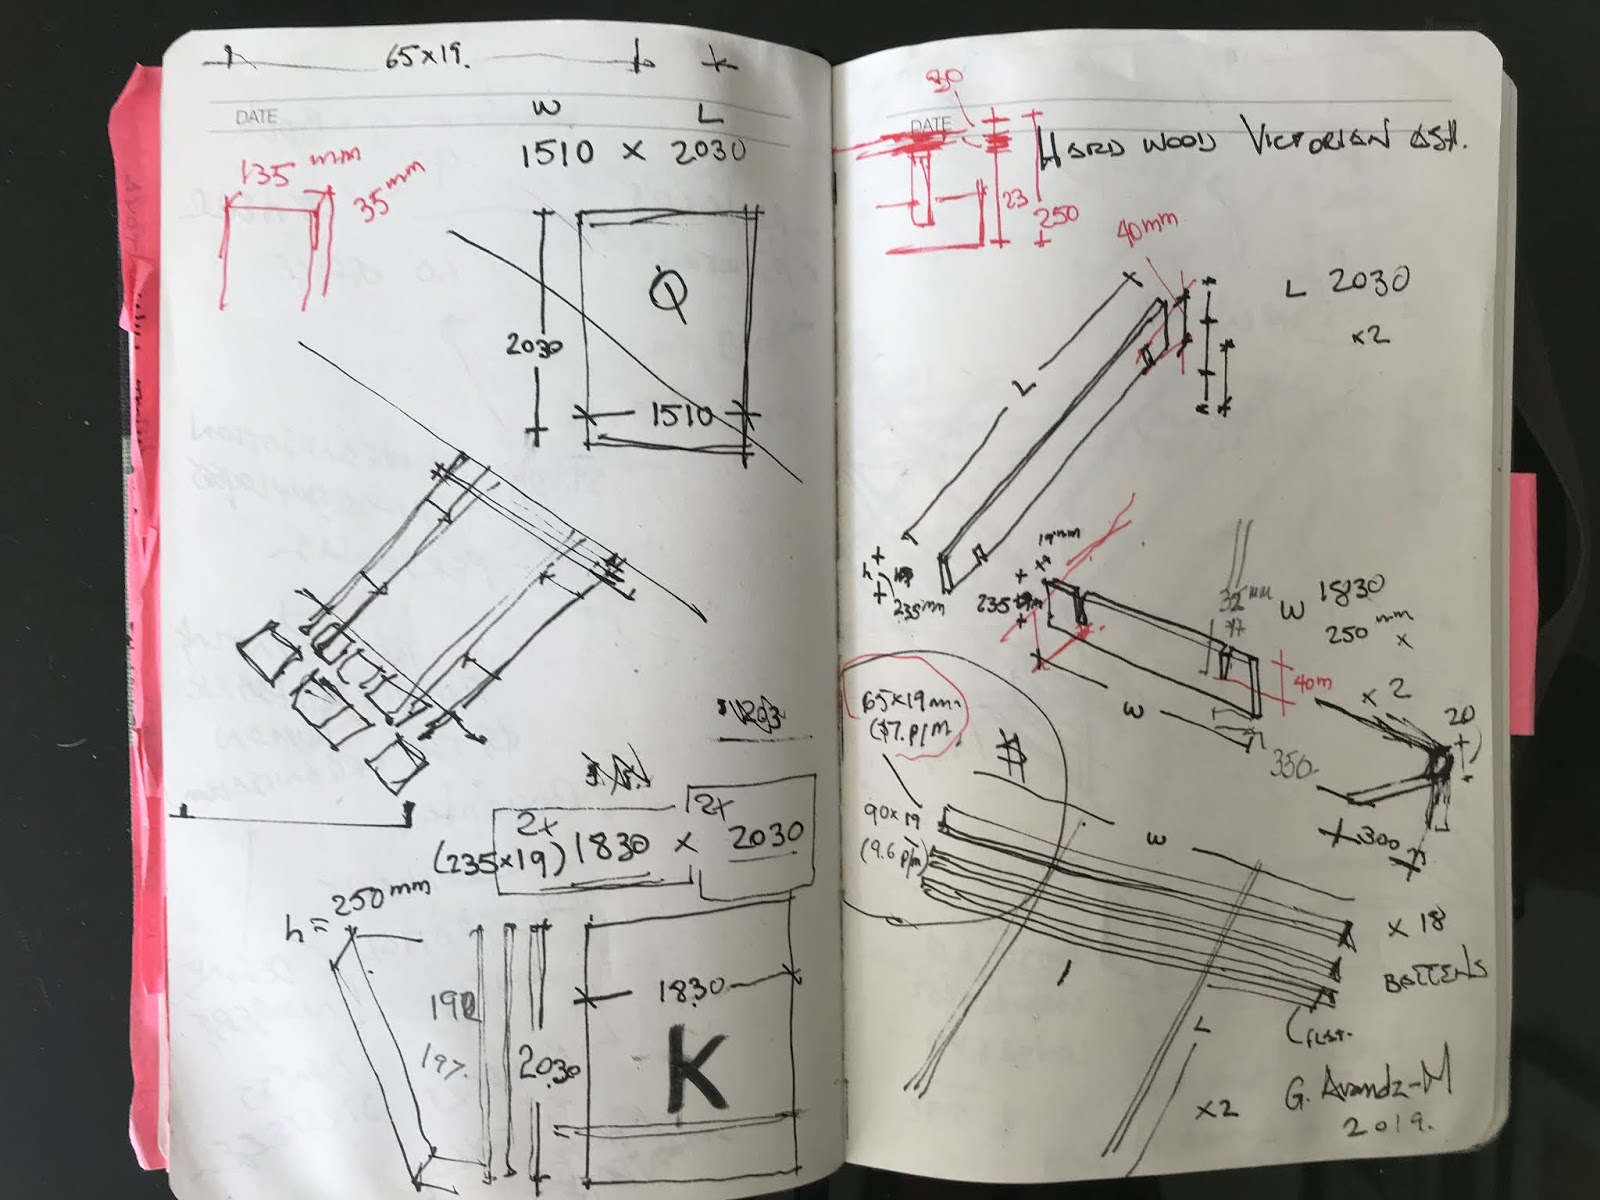 65x19.
DATE
W L
1510 x 2030
135 mm
35 mm
Q
2030
1510
2x 2x
(235x19) 1830 x 2030
h= 250 mm
1830
197.
2030
K
30
DATE
HARD WOOD VICTORIAN ASH.
23
250
40mm
L 2030
x2
L
h
235mm
19mm
235
W 1830
250 mm
x
x 2
40m
W
350
20
300
65x19mm
($7.p/m.
$
90x19
(9.6 p/m)
W
x 18
BATTENS
L
x2
G. Arandz-M
2019.